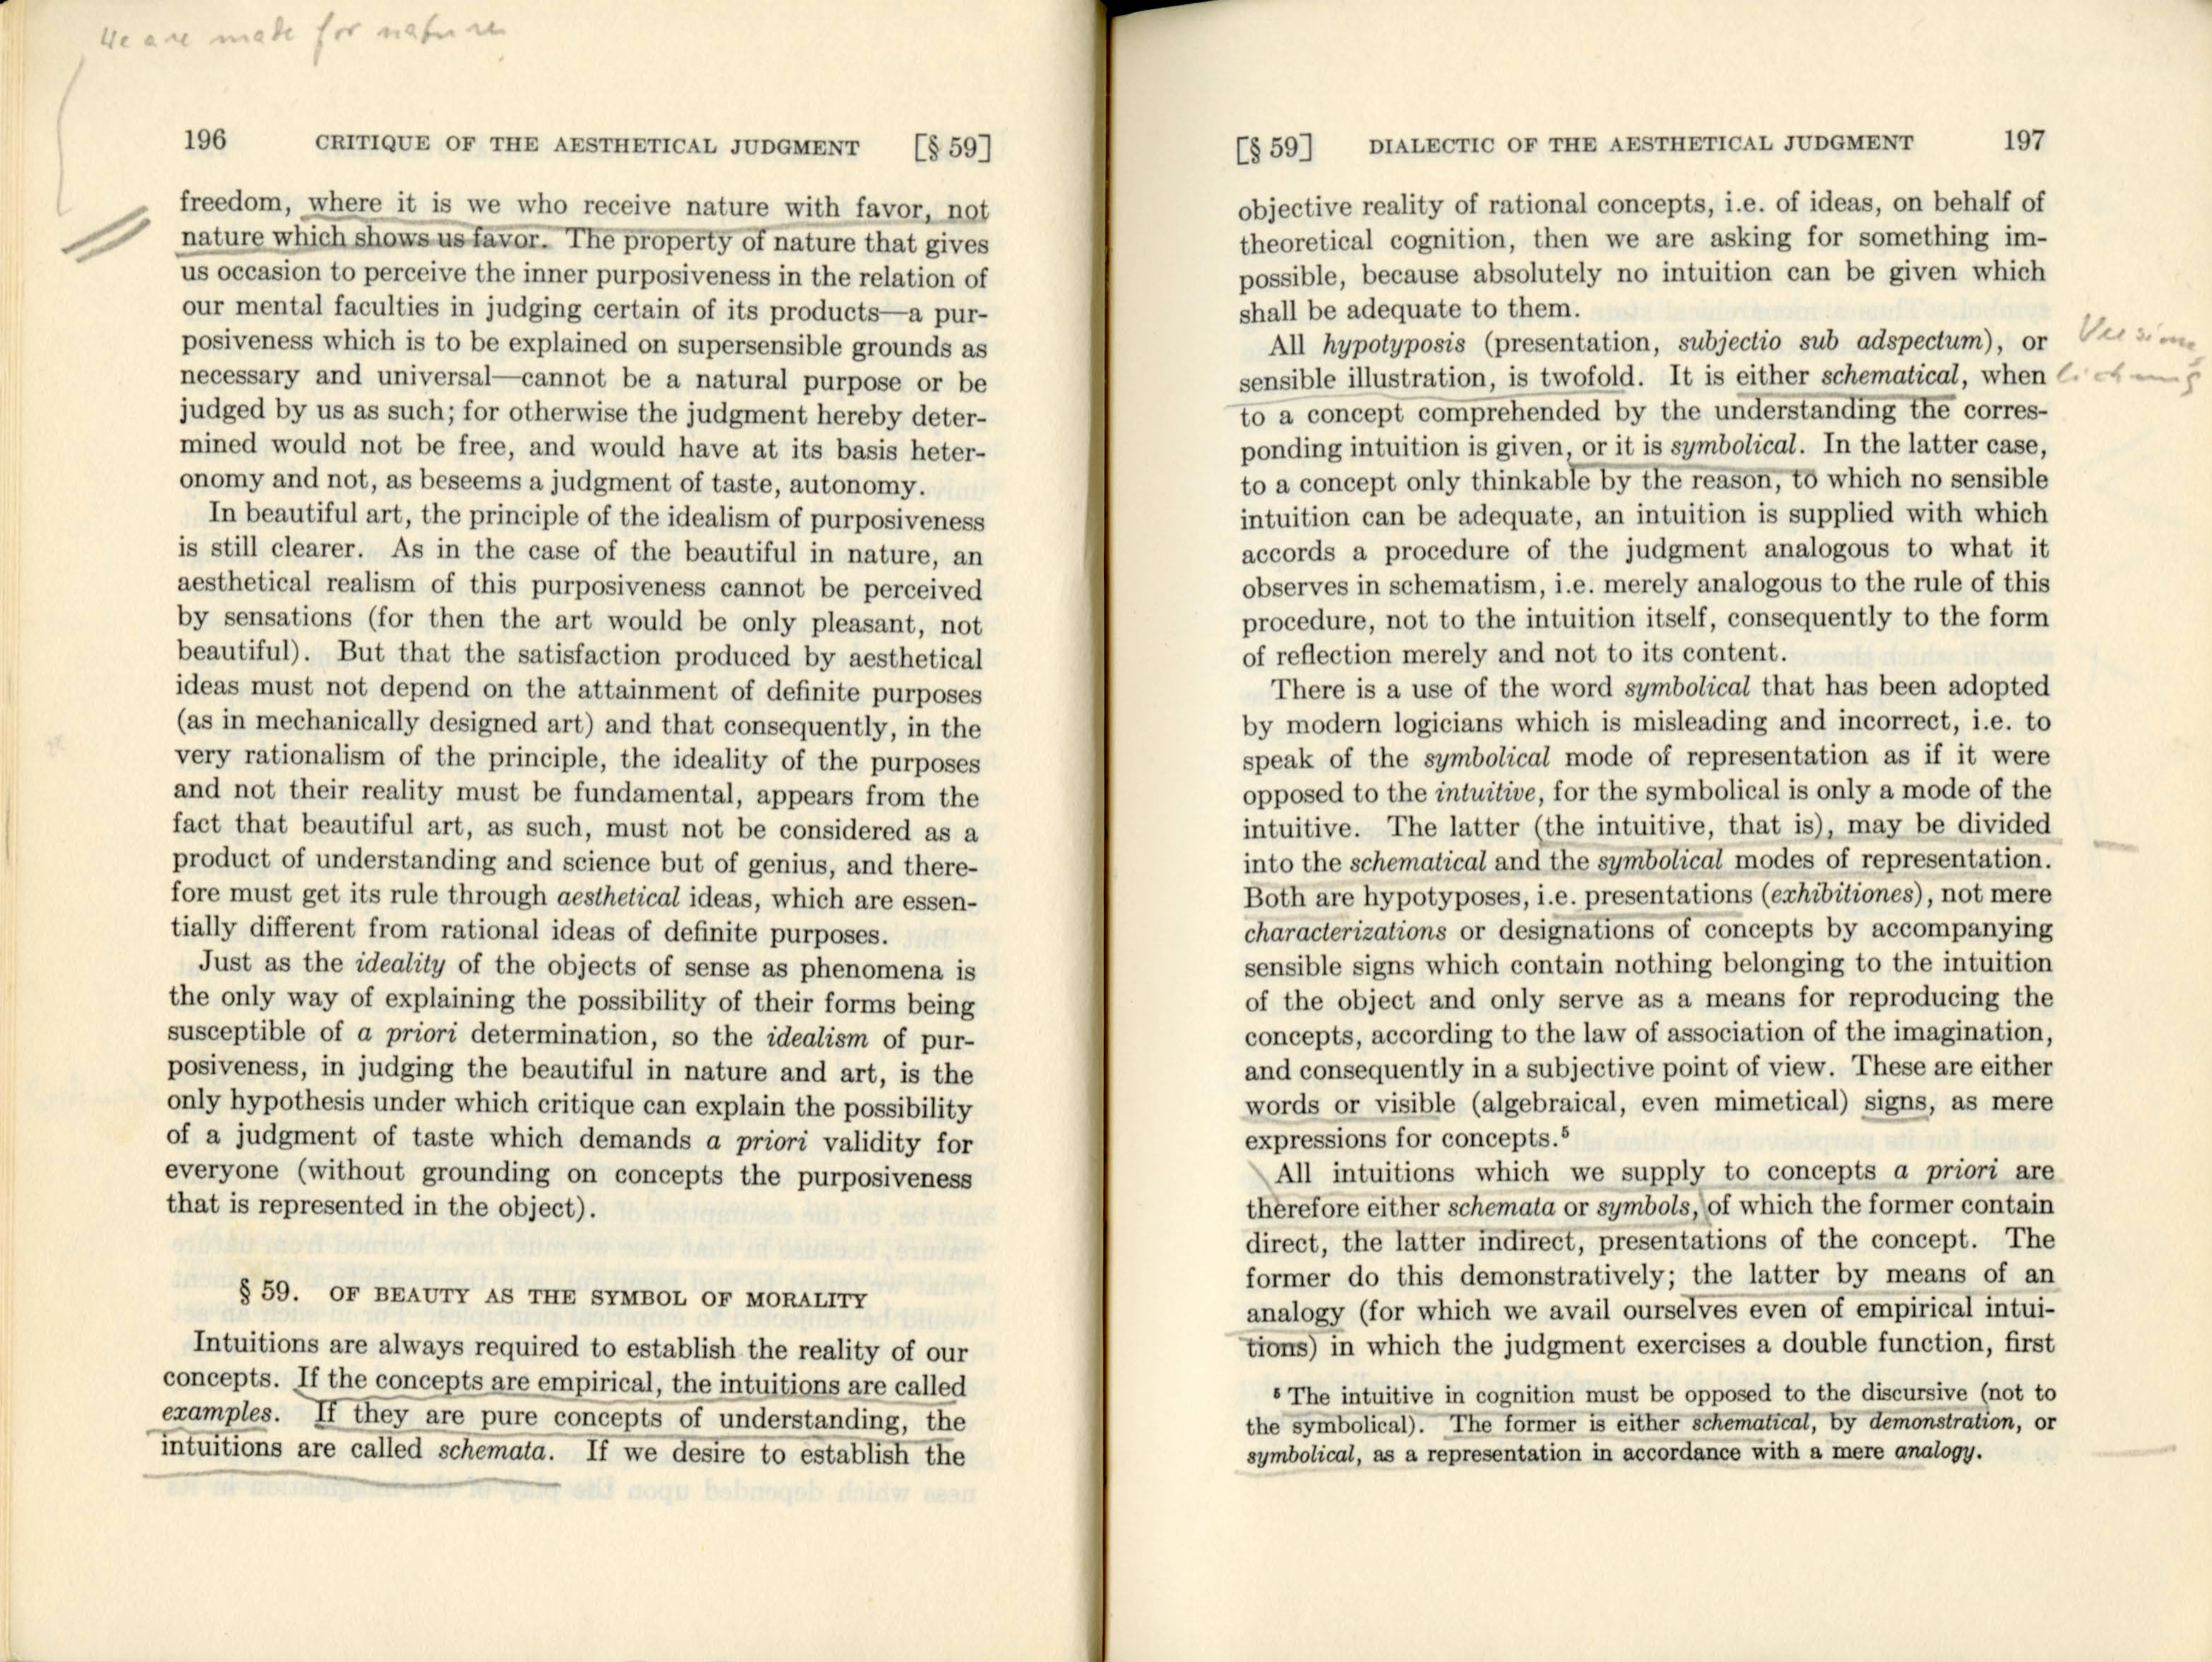 We are made for nature
196 CRITIQUE OF THE AESTHETICAL JUDGMENT [§ 59]
freedom, where it is we who receive nature with favor, not
nature which shows us favor. The property of nature that gives
us occasion to perceive the inner purposiveness in the relation of
our mental faculties in judging certain of its products—a pur-
posiveness which is to be explained on supersensible grounds as
necessary and universal—cannot be a natural purpose or be
judged by us as such; for otherwise the judgment hereby deter-
mined would not be free, and would have at its basis heter-
onomy and not, as beseems a judgment of taste, autonomy.
In beautiful art, the principle of the idealism of purposiveness
is still clearer. As in the case of the beautiful in nature, an
aesthetical realism of this purposiveness cannot be perceived
by sensations (for then the art would be only pleasant, not
beautiful). But that the satisfaction produced by aesthetical
ideas must not depend on the attainment of definite purposes
(as in mechanically designed art) and that consequently, in the
very rationalism of the principle, the ideality of the purposes
and not their reality must be fundamental, appears from the
fact that beautiful art, as such, must not be considered as a
product of understanding and science but of genius, and there-
fore must get its rule through aesthetical ideas, which are essen-
tially different from rational ideas of definite purposes.
Just as the ideality of the objects of sense as phenomena is
the only way of explaining the possibility of their forms being
susceptible of a priori determination, so the idealism of pur-
posiveness, in judging the beautiful in nature and art, is the
only hypothesis under which critique can explain the possibility
of a judgment of taste which demands a priori validity for
everyone (without grounding on concepts the purposiveness
that is represented in the object).
§ 59. OF BEAUTY AS THE SYMBOL OF MORALITY
Intuitions are always required to establish the reality of our
concepts. If the concepts are empirical, the intuitions are called
examples. If they are pure concepts of understanding, the
intuitions are called schemata. If we desire to establish the
[§ 59] DIALECTIC OF THE AESTHETICAL JUDGMENT 197
objective reality of rational concepts, i.e. of ideas, on behalf of
theoretical cognition, then we are asking for something im-
possible, because absolutely no intuition can be given which
shall be adequate to them.
All hypotyposis (presentation, subjectio sub adspectum), or
sensible illustration, is twofold. It is either schematical, when
to a concept comprehended by the understanding the corres-
ponding intuition is given, or it is symbolical. In the latter case,
to a concept only thinkable by the reason, to which no sensible
intuition can be adequate, an intuition is supplied with which
accords a procedure of the judgment analogous to what it
observes in schematism, i.e. merely analogous to the rule of this
procedure, not to the intuition itself, consequently to the form
of reflection merely and not to its content.
There is a use of the word symbolical that has been adopted
by modern logicians which is misleading and incorrect, i.e. to
speak of the symbolical mode of representation as if it were
opposed to the intuitive, for the symbolical is only a mode of the
intuitive. The latter (the intuitive, that is), may be divided
into the schematical and the symbolical modes of representation.
Both are hypotyposes, i.e. presentations (exhibitiones), not mere
characterizations or designations of concepts by accompanying
sensible signs which contain nothing belonging to the intuition
of the object and only serve as a means for reproducing the
concepts, according to the law of association of the imagination,
and consequently in a subjective point of view. These are either
words or visible (algebraical, even mimetical) signs, as mere
expressions for concepts.⁵
All intuitions which we supply to concepts a priori are
therefore either schemata or symbols, of which the former contain
direct, the latter indirect, presentations of the concept. The
former do this demonstratively; the latter by means of an
analogy (for which we avail ourselves even of empirical intui-
tions) in which the judgment exercises a double function, first
⁵ The intuitive in cognition must be opposed to the discursive (not to
the symbolical). The former is either schematical, by demonstration, or
symbolical, as a representation in accordance with a mere analogy.